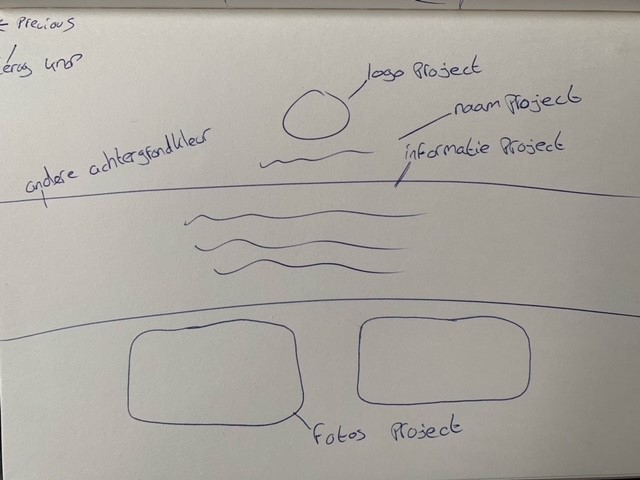 ← Precious
erug knop
logo Project
naam Project
informatie Project
andere achtergrondkleur
fotos Project